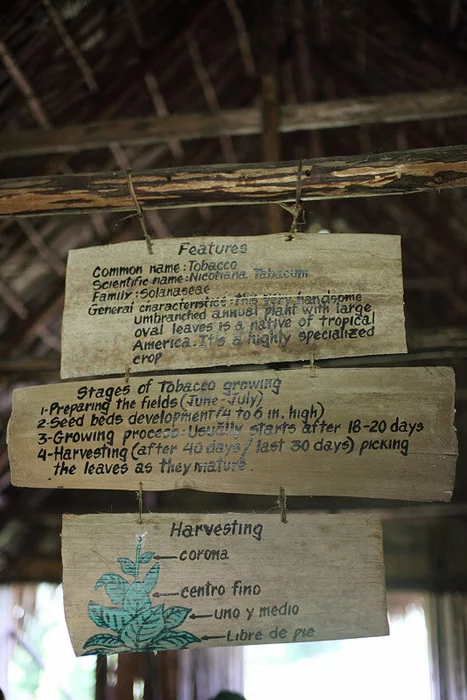 Features
Common name: Tobacco
Scientific name: Nicotiana Tabacum
Family: Solanaseae
General characteristic: this very handsome
umbranched annual plant with large
oval leaves is a native of tropical
America. It's a highly specialized
crop
Stages of Tobacco growing
1-Preparing the fields (June-July)
2-Seed beds development (4 to 6 in. high)
3-Growing process: Usually starts after 18-20 days
4-Harvesting (after 40 days / last 30 days) picking
the leaves as they mature.
Harvesting
corona
centro fino
uno y medio
Libre de pie